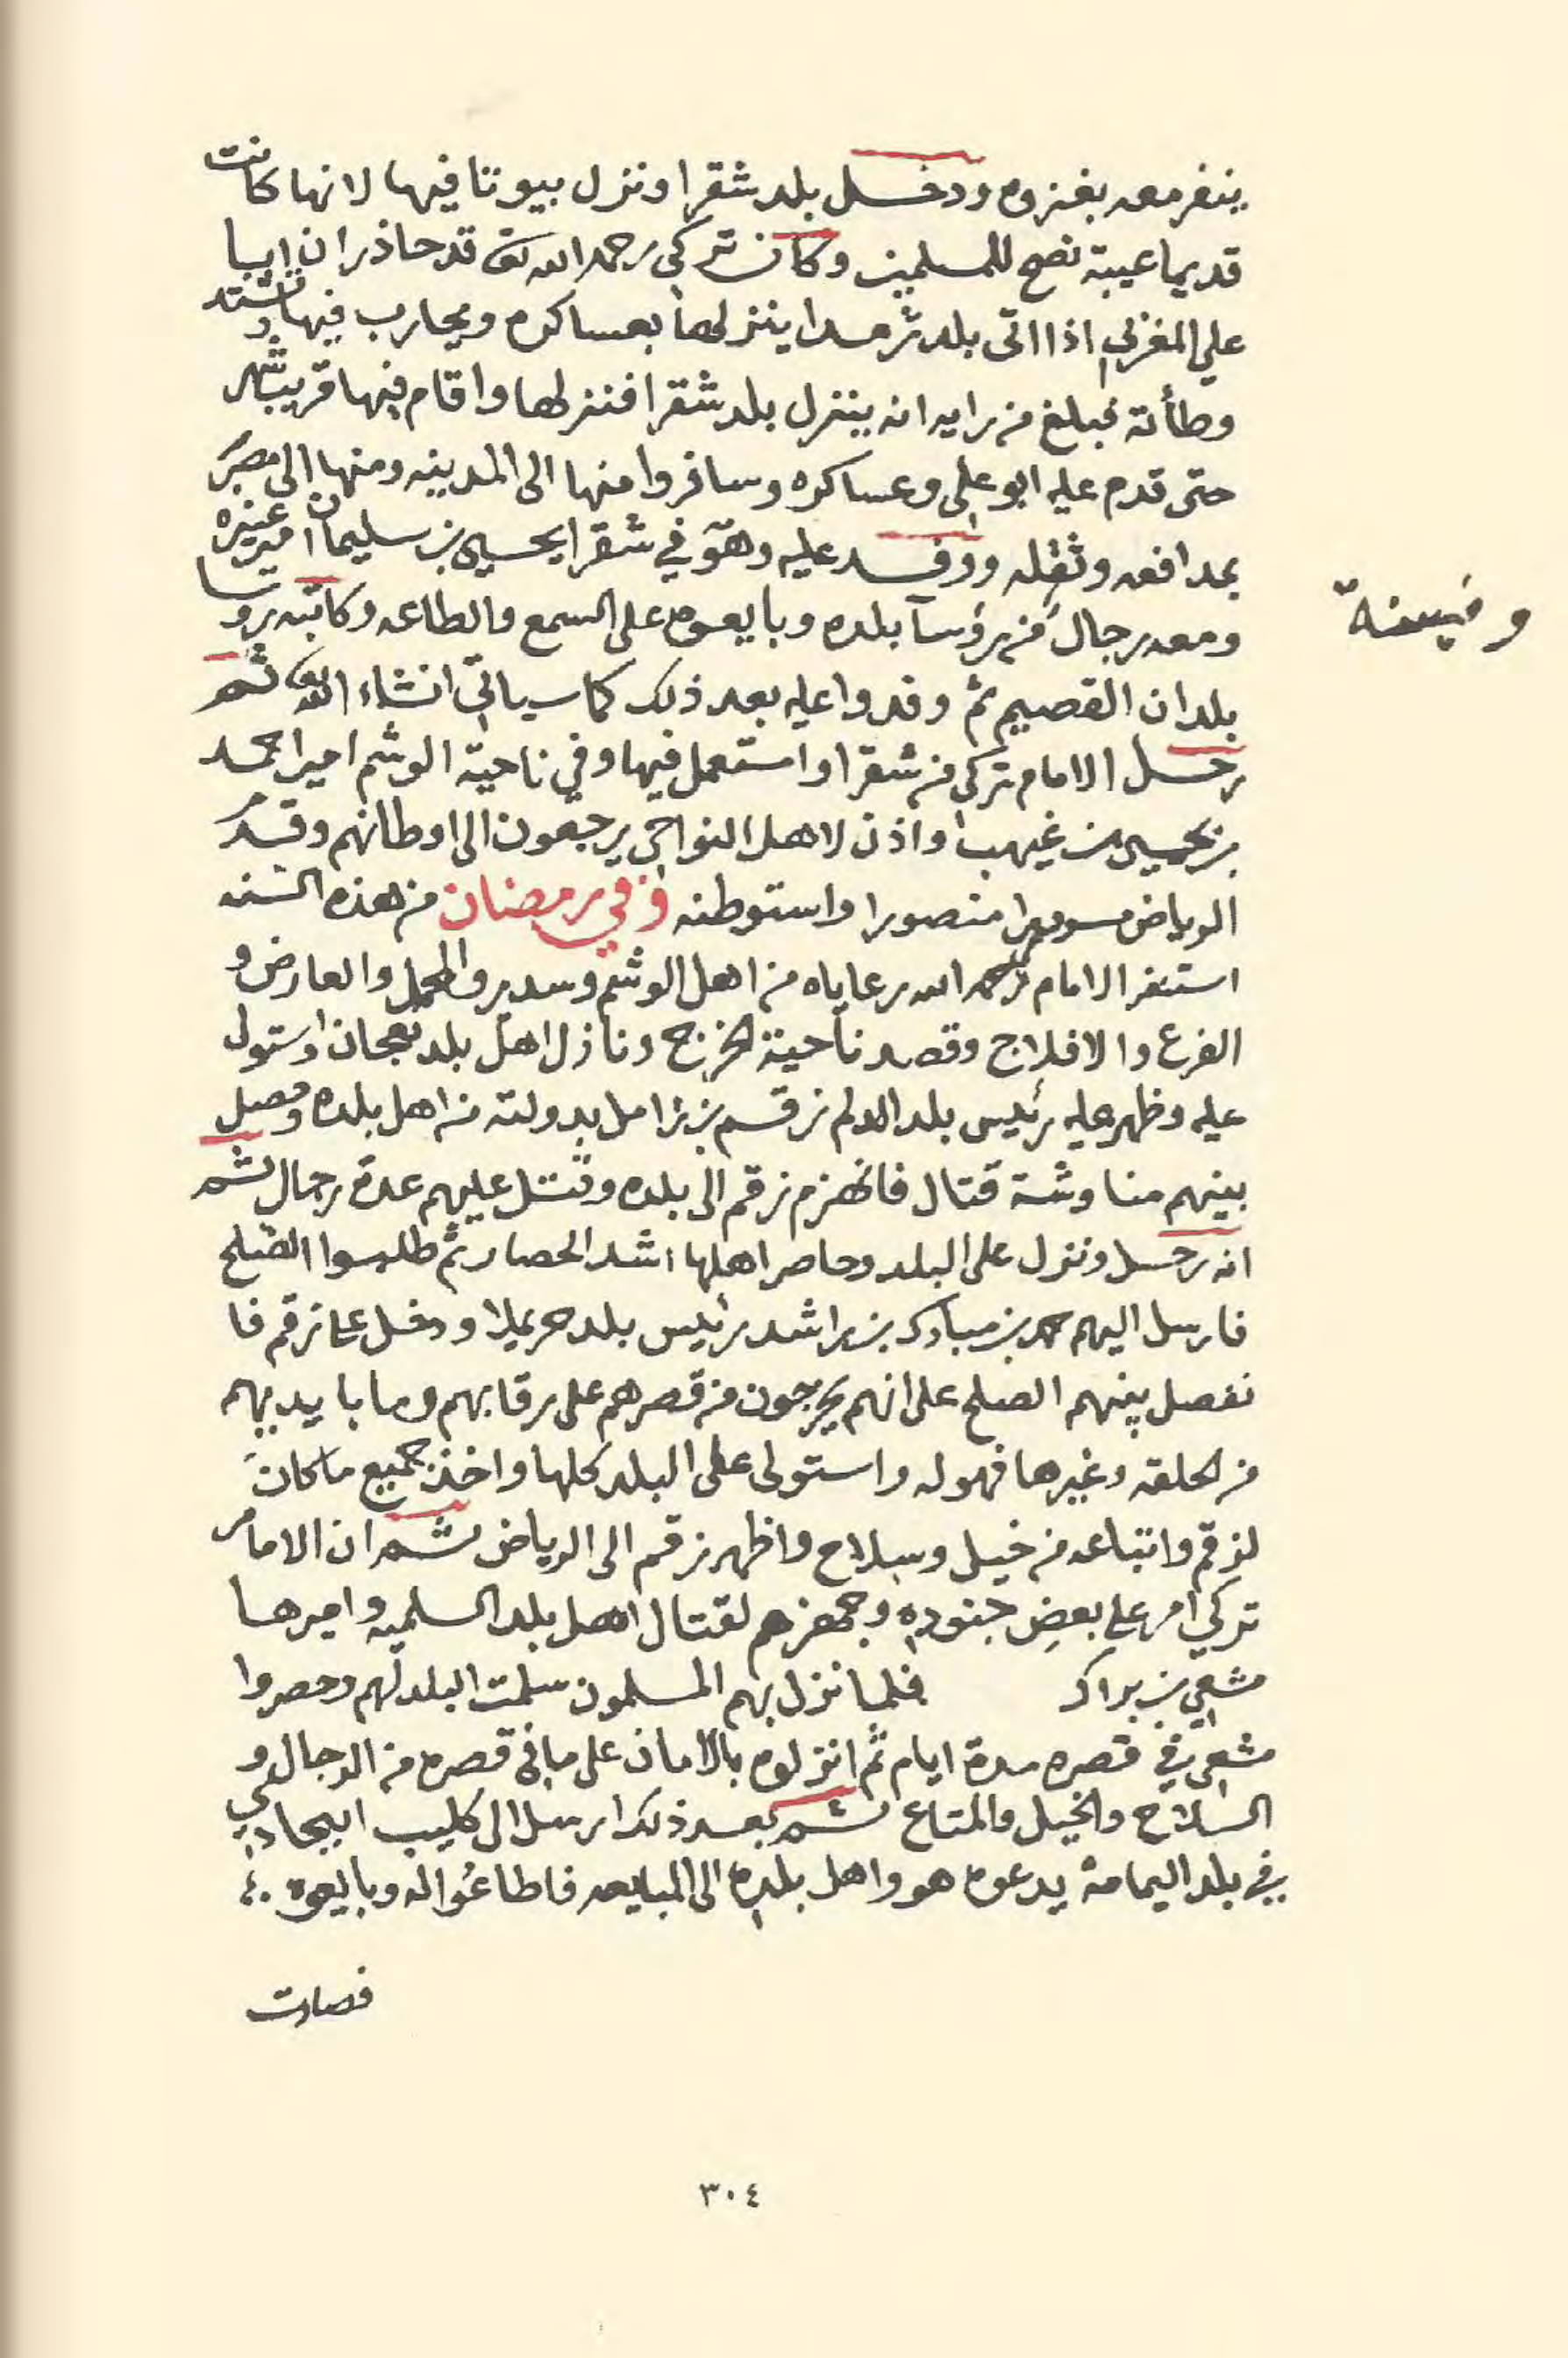 ينفر معه بغزوه ودخل بلد شقرا ونزل بيوتا فيها لانها كانت
قديما عيبة نصح للمسلمين وكان تركي رحمه الله تعالى قد حاذر ان ابا
علي المغربي اذا اتى بلد ثرمدا ينزلها بعساكره ويحارب فيها وتشتد
وطأته فبلغ من رايه انه ينزل بلد شقرا فنزلها واقام فيها قريب شهر
حتى قدم عليه ابو علي وعساكره وسافروا منها الى المدينه ومنها الى مصر
بمدافعه وثقله ووفد عليه وهو في شقرا يحيى بن سليمان امير عنيزه
ومعه رجال من رؤسآ بلده وبايعوه على السمع والطاعه وكاتبه روسا
بلدان القصيم ثم وفدوا عليه بعد ذلك كما سياتي انشاء الله تعالى ثم
رحل الامام تركي من شقرا واستعمل فيها وفي ناحية الوشم اميرا حمد
بن يحيى بن غيهب واذن لاهل النواحي يرجعون الى اوطانهم وقدم
الرياض مسرورا منصورا واستوطنه وفي رمضان من هذه السنه
استنفر الامام رحمه الله رعاياه من اهل الوشم وسدير والمحمل والعارض و
الفرع والافلاج وقصد ناحية الخرج ونازل اهل بلد نعجان واستولى
عليه وظهر عليه رئيس بلد الدلم زقم بن زامل بدولته من اهل بلده وحصل
بينهم مناوشة قتال فانهزم زقم الى بلده وقتل عليهم عدة رجال ثم
انه رحل ونزل على البلد وحاصر اهلها اشد الحصار ثم طلبوا الصلح
فارسل اليهم حمد بن مبارك بن راشد رئيس بلد حريملا ودخل على زقم فا
نفصل بينهم الصلح على انهم يخرجون من قصرهم على رقابهم وما بايديهم
من الحلقه وغيرها فهو له واستولى على البلد كلها واخذ جميع ما كان
لزقم واتباعه من خيل وسلاح واظهر زقم الى الرياض ثم ان الامام
تركي امر على بعض جنوده وجهزهم لقتال اهل بلد السلميه واميرها
مشعي بن براك فلما نزل بهم المسلمون سلمت البلد لهم وحصروا
مشعي في قصره مدة ايام ثم انزلوه بالامان على ما في قصره من الرجال و
السلاح والخيل والمتاع ثم بعد ذلك ارسل الى كليب البجادي
في بلد اليمامة يدعوه هو واهل بلده الى المبايعه فاطاعوا له وبايعوه
فصارت
٣٠٤